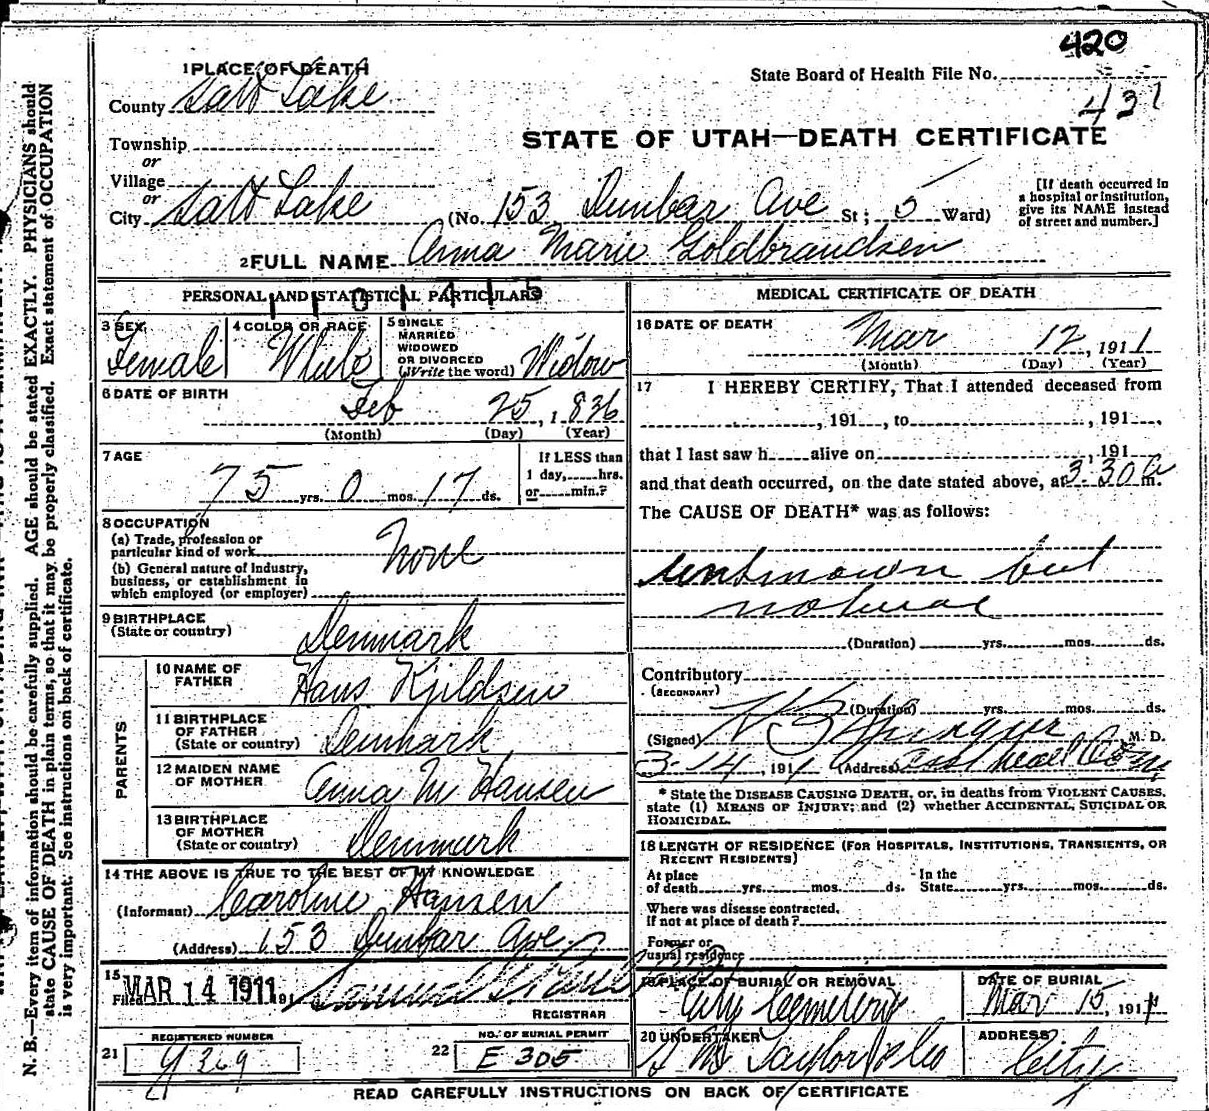 420
State Board of Health File No.
437
1 PLACE OF DEATH
County Salt Lake
STATE OF UTAH—DEATH CERTIFICATE
Township
or
Village
or
City Salt Lake (No. 153 Dunbar Ave St; 5 Ward)
[If death occurred in
a hospital or institution,
give its NAME instead
of street and number.]
2 FULL NAME Anna Marie Goldbrandsen
PERSONAL AND STATISTICAL PARTICULARS
3 SEX
Female
4 COLOR OR RACE
White
5 SINGLE
MARRIED
WIDOWED
OR DIVORCED
(Write the word) Widow
6 DATE OF BIRTH
Feb 25, 1836
(Month) (Day) (Year)
7 AGE
75 yrs. 0 mos. 17 ds.
If LESS than
1 day, hrs.
or min.?
8 OCCUPATION
(a) Trade, profession or
particular kind of work
None
(b) General nature of Industry,
business, or establishment in
which employed (or employer)
9 BIRTHPLACE
(State or country)
Denmark
PARENTS
10 NAME OF
FATHER
Hans Kjildsen
11 BIRTHPLACE
OF FATHER
(State or country)
Denmark
12 MAIDEN NAME
OF MOTHER
Anna M Hansen
13 BIRTHPLACE
OF MOTHER
(State or country)
Denmark
14 THE ABOVE IS TRUE TO THE BEST OF MY KNOWLEDGE
(Informant) Caroline Hansen
(Address) 153 Dunbar Ave
15
Filed MAR 14 1911 191
REGISTRAR
REGISTERED NUMBER
21 Y 369
NO. OF BURIAL PERMIT
22 E 305
MEDICAL CERTIFICATE OF DEATH
16 DATE OF DEATH
Mar 12, 1911
(Month) (Day) (Year)
17 I HEREBY CERTIFY, That I attended deceased from
, 191 , to , 191 ,
that I last saw h alive on , 191
and that death occurred, on the date stated above, at 3.30 a m.
The CAUSE OF DEATH* was as follows:
unknown but
natural
(Duration) yrs. mos. ds.
Contributory
(SECONDARY)
(Duration) yrs. mos. ds.
(Signed) M. D.
3-14, 1911 (Address)
* State the DISEASE CAUSING DEATH, or, in deaths from VIOLENT CAUSES,
state (1) MEANS OF INJURY; and (2) whether ACCIDENTAL, SUICIDAL OR
HOMICIDAL.
18 LENGTH OF RESIDENCE (FOR HOSPITALS, INSTITUTIONS, TRANSIENTS, OR
RECENT RESIDENTS)
At place
of death yrs. mos. ds.
In the
State yrs. mos. ds.
Where was disease contracted,
if not at place of death?
Former or
usual residence
19 PLACE OF BURIAL OR REMOVAL
City Cemetery
DATE OF BURIAL
Mar 15, 1911
20 UNDERTAKER
S M Taylor & Co
ADDRESS
City
READ CAREFULLY INSTRUCTIONS ON BACK OF CERTIFICATE
N. B.—Every item of information should be carefully supplied. AGE should be stated EXACTLY. PHYSICIANS should
state CAUSE OF DEATH in plain terms, so that it may be properly classified. Exact statement of OCCUPATION
is very important. See instructions on back of certificate.